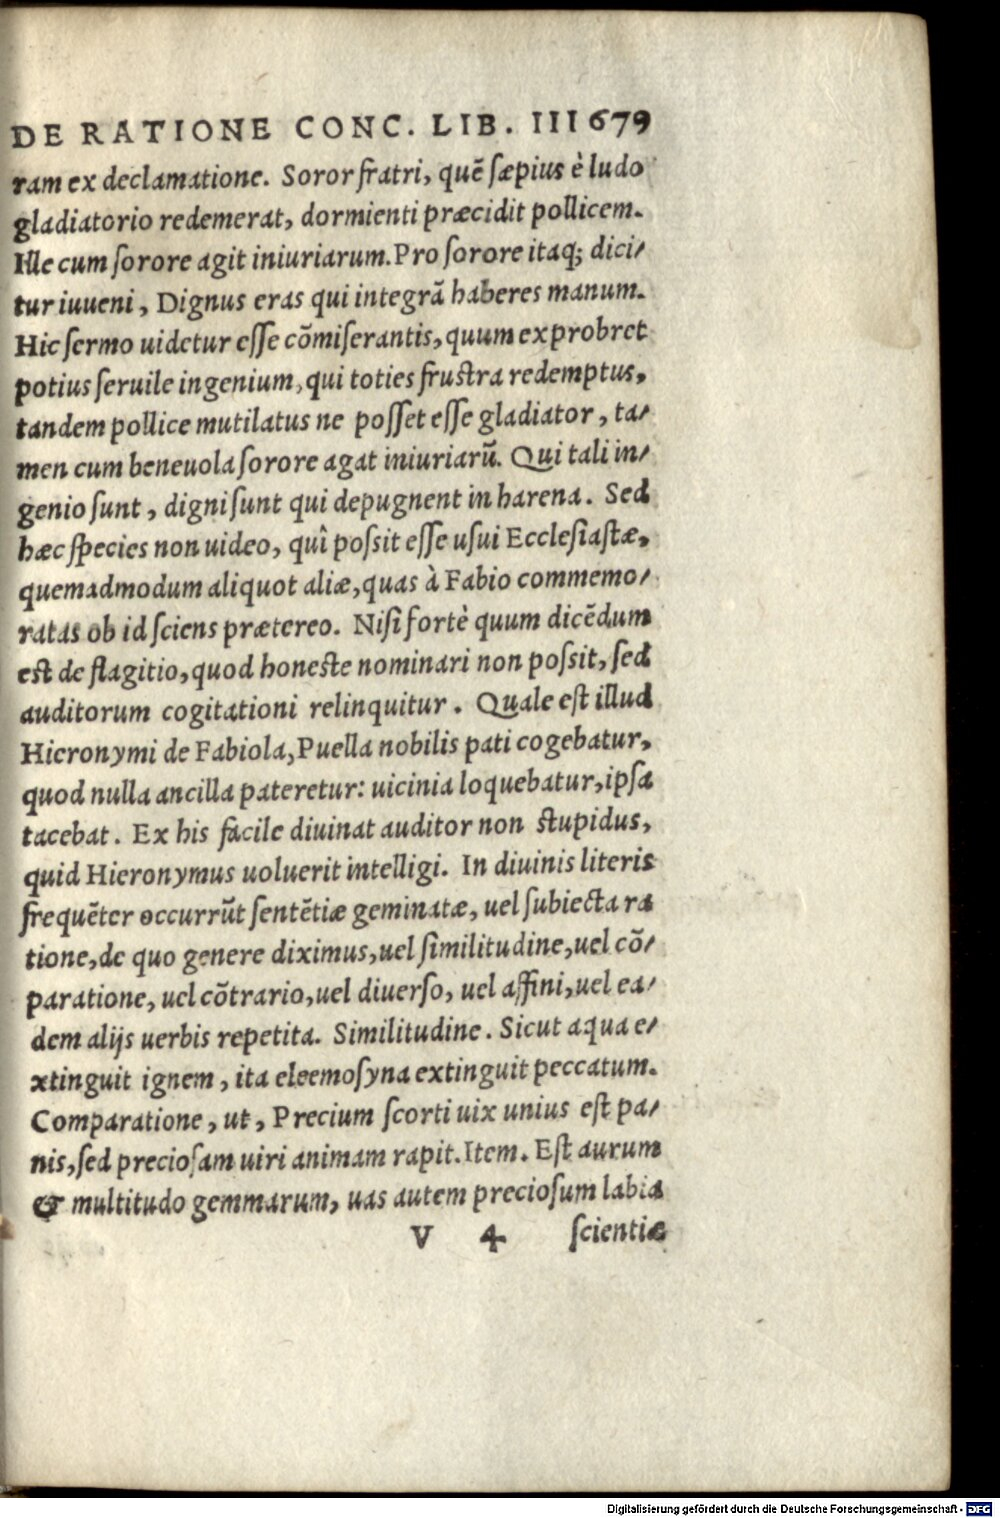 DE RATIONE CONC. LIB. III 679
ram ex declamatione. Soror fratri, quẽ sæpius è ludo
gladiatorio redemerat, dormienti præcidit pollicem.
Ille cum sorore agit iniuriarum. Pro sorore itaq; dici/
tur iuueni, Dignus eras qui integrã haberes manum.
Hic sermo uidetur esse cõmiserantis, quum exprobret
potius seruile ingenium, qui toties frustra redemptus,
tandem pollice mutilatus ne posset esse gladiator, ta/
men cum beneuola sorore agat iniuriarũ. Qui tali in/
genio sunt, digni sunt qui depugnent in harena. Sed
hæc species non uideo, quî possit esse usui Ecclesiastæ,
quemadmodum aliquot aliæ, quas à Fabio commemo/
ratas ob id sciens prætereo. Nisi fortè quum dicẽdum
est de flagitio, quod honeste nominari non possit, sed
auditorum cogitationi relinquitur. Quale est illud
Hieronymi de Fabiola, Puella nobilis pati cogebatur,
quod nulla ancilla pateretur: uicinia loquebatur, ipsa
tacebat. Ex his facile diuinat auditor non stupidus,
quid Hieronymus uoluerit intelligi. In diuinis literis
frequẽter occurrũt sentẽtiæ geminatæ, uel subiecta ra
tione, de quo genere diximus, uel similitudine, uel cõ/
paratione, uel cõtrario, uel diuerso, uel affini, uel ea/
dem alijs uerbis repetita. Similitudine. Sicut aqua e/
xtinguit ignem, ita eleemosyna extinguit peccatum.
Comparatione, ut, Precium scorti uix unius est pa/
nis, sed preciosam uiri animam rapit. Item. Est aurum
& multitudo gemmarum, uas autem preciosum labia
V 4 scientiæ
Digitalisierung gefördert durch die Deutsche Forschungsgemeinschaft - DFG